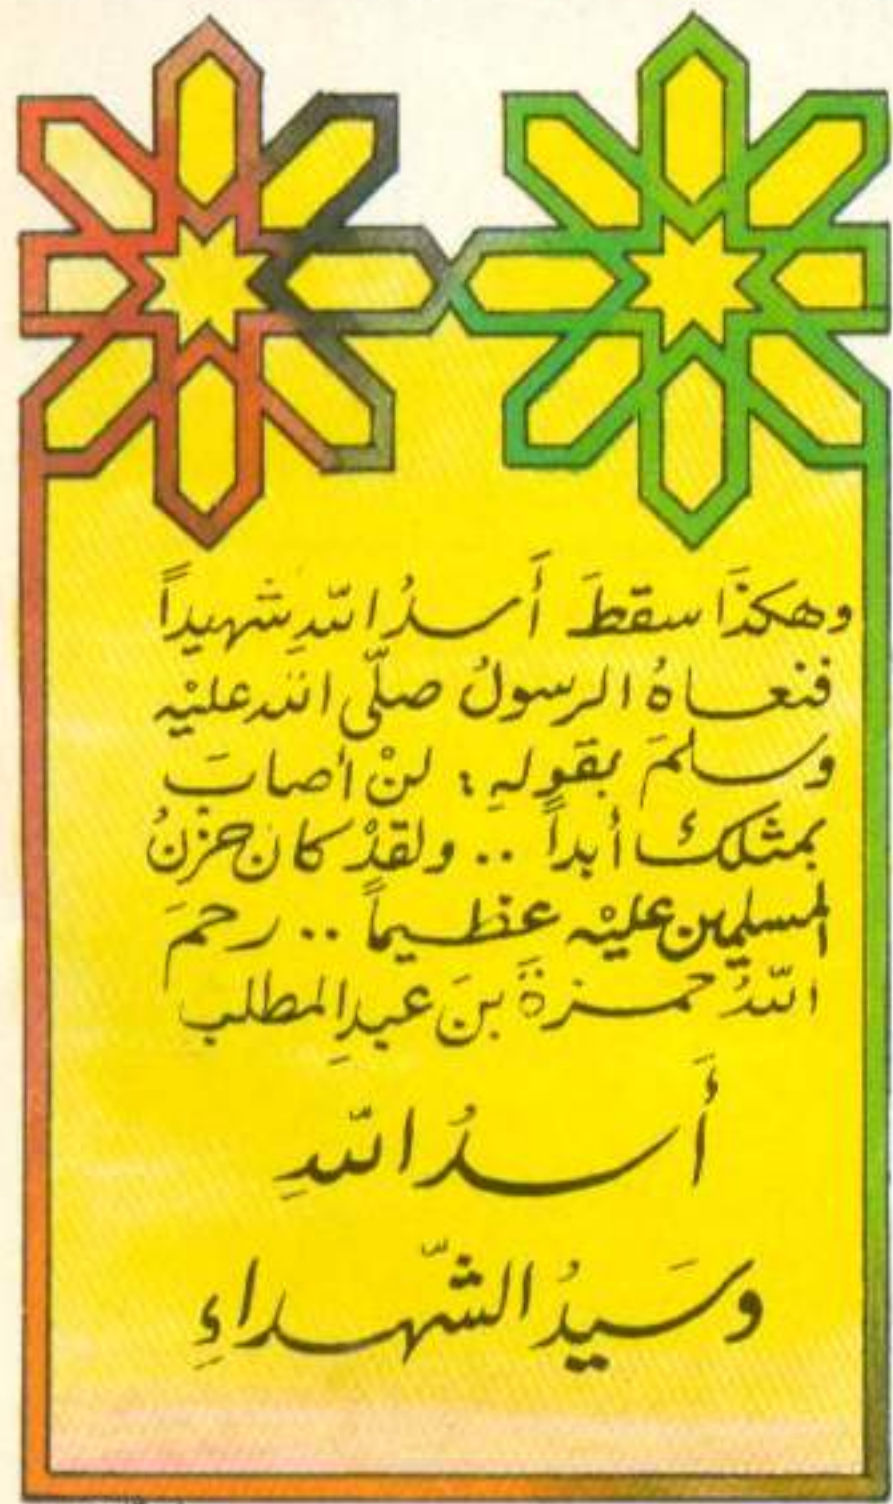 وهكذَا سقطَ أَسدُ اللّهِ شهيداً
فنعاهُ الرسولُ صلّى الله عليْه
وسلمَ بقَولهِ : لنْ أصابَ
بمثلك أبداً .. ولقدْ كان حزْنُ
المسلمين عليْه عظيماً .. رحمَ
اللّهُ حمزةَ بنَ عبدِ المطلب
أَسدُ اللّهِ
وسَيدُ الشّهداءِ